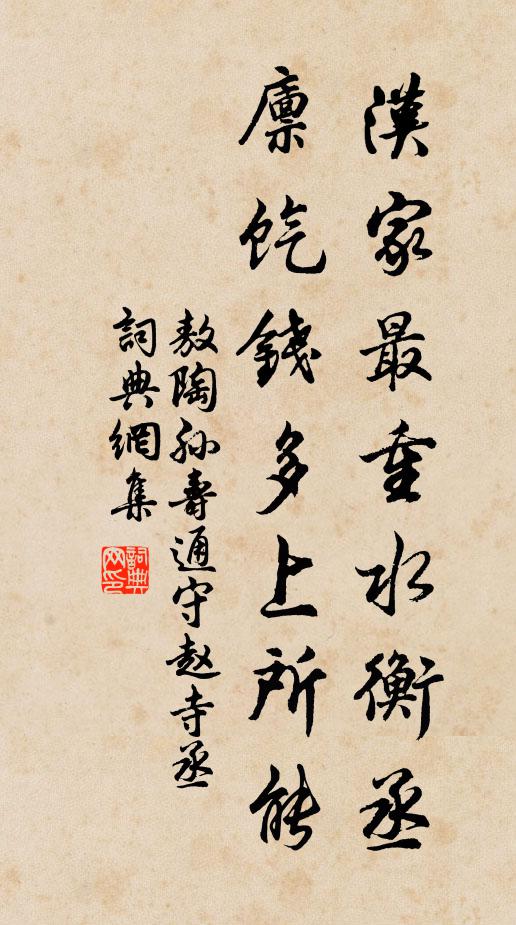 漢家最重水衡丞
廪饩錢多上所能
敖陶孫壽通守赵寺丞
詞典網集
詞典网印